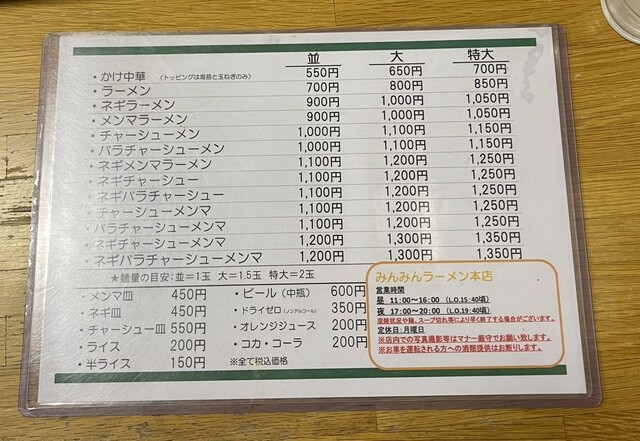 並 大 特大
・かけ中華 (トッピングは海苔と玉ねぎのみ) 550円 650円 700円
・ラーメン 700円 800円 850円
・ネギラーメン 900円 1,000円 1,050円
・メンマラーメン 900円 1,000円 1,050円
・チャーシューメン 1,000円 1,100円 1,150円
・バラチャーシューメン 1,000円 1,100円 1,150円
・ネギメンマラーメン 1,100円 1,200円 1,250円
・ネギチャーシュー 1,100円 1,200円 1,250円
・ネギバラチャーシュー 1,100円 1,200円 1,250円
・チャーシューメンマ 1,100円 1,200円 1,250円
・バラチャーシューメンマ 1,100円 1,200円 1,250円
・ネギチャーシューメンマ 1,200円 1,300円 1,350円
・ネギバラチャーシューメンマ 1,200円 1,300円 1,350円
★麺量の目安:並=1玉 大=1.5玉 特大=2玉
・メンマ皿 450円 ・ビール(中瓶) 600円
・ネギ皿 450円 ・ドライゼロ(ノンアルコール) 350円
・チャーシュー皿 550円 ・オレンジジュース 200円
・ライス 200円 ・コカ・コーラ 200円
・半ライス 150円 ※全て税込価格
みんみんラーメン本店
営業時間
昼 11:00～16:00 (L.O.15:40頃)
夜 17:00～20:00 (L.O.19:40頃)
混雑状況や麺、スープ切れ等により早く終了する場合がございます。
定休日:月曜日
※店内での写真撮影等はマナー厳守でお願い致します。
※お車を運転される方への酒類提供はお断りします。